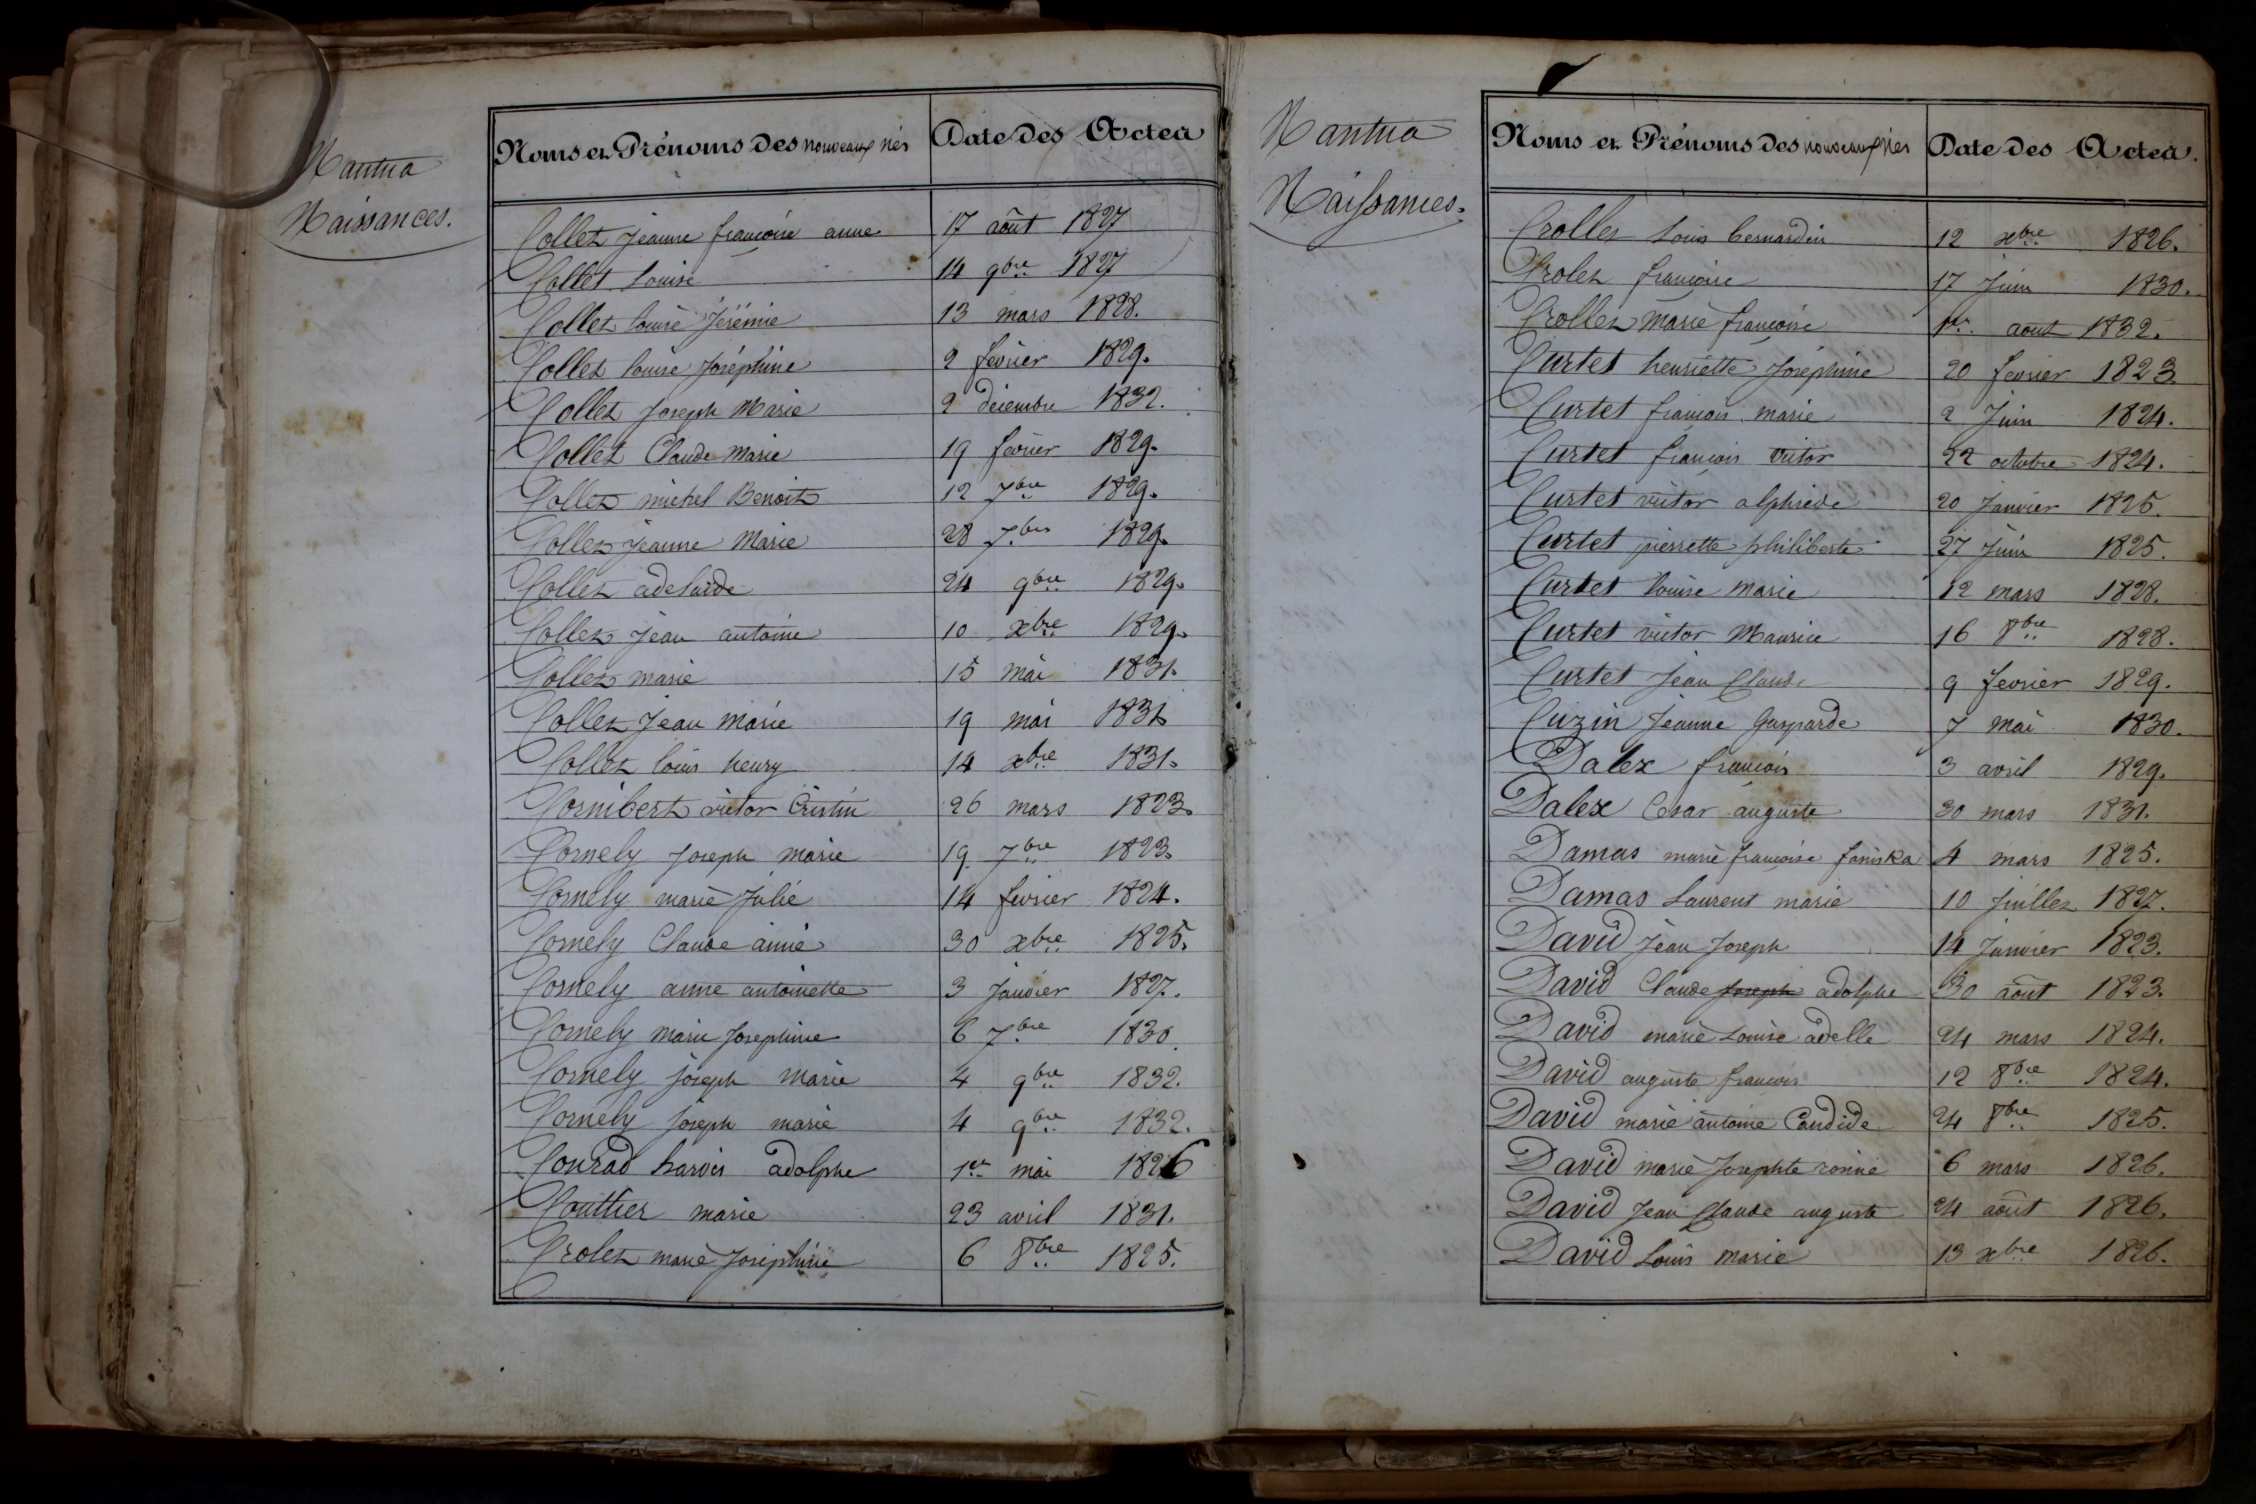 Nantua
Naissances.
Noms et Prénoms des nouveaux nés Date des Actes
Collet Jeanne françoise anne 17 août 1827
Collet Louise 14 9bre 1827
Collet Louise Jérémie 13 mars 1828.
Collet Louise Joséphine 2 février 1829.
Collet Joseph Marie 2 décembre 1832.
Collet Claude Marie 19 février 1829.
Collet michel Benoit 12 7bre 1829.
Collet Jeanne Marie 28 7bre 1829.
Collet adelaide 24 9bre 1829.
Collet Jean antoine 10 xbre 1829.
Collet marie 15 mai 1831.
Collet Jean Marie 19 mai 1831
Collet Louis henry 14 xbre 1831.
Cornibert victor Cristin 26 mars 1823.
Cornely Joseph marie 19 7bre 1823.
Cornely marie Julie 14 février 1824.
Cornely Claude aimé 30 xbre 1825.
Cornely anne antoinette 3 janvier 1827.
Cornely Marie Josephine 6 7bre 1830.
Cornely joseph Marie 4 9bre 1832.
Cornely joseph marie 4 9bre 1832.
Conrad adolphe 1er mai 1826
Couttier marie 23 avril 1831.
Crolet marie Joséphine 6 8bre 1825.
Nantua
Naissances.
Noms et Prénoms des nouveaux nés Date des Actes.
Crollet Louis bernardin 12 xbre 1826.
Crolet françoise 17 Juin 1830.
Crollet Marie françoise 1er août 1832.
Curtet henriette Joséphine 20 février 1823.
Curtet françois marie 2 Juin 1824.
Curtet françois victor 22 octobre 1824.
Curtet victor alphrede 20 Janvier 1825.
Curtet pierrette philiberte 27 Juin 1825.
Curtet Louise Marie 12 mars 1828.
Curtet victor Maurice 16 8bre 1828.
Curtet Jean Claude 9 février 1829.
Cuzin Jeanne Gasparde 7 mai 1830.
Dalex françois 3 avril 1829.
Dalex Cesar auguste 30 mars 1831.
Damas marie françoise faniska 4 mars 1825.
Damas Laurent marie 10 Juillet 1827.
David Jean Joseph 14 Janvier 1823.
David Claude Joseph adolphe 30 août 1823.
David marie Louise adelle 24 mars 1824.
David auguste françois 12 8bre 1824.
David marie antoine Candide 24 8bre 1825.
David marie Josephte 6 mars 1826.
David Jean Claude auguste 24 août 1826.
David Louis Marie 13 xbre 1826.